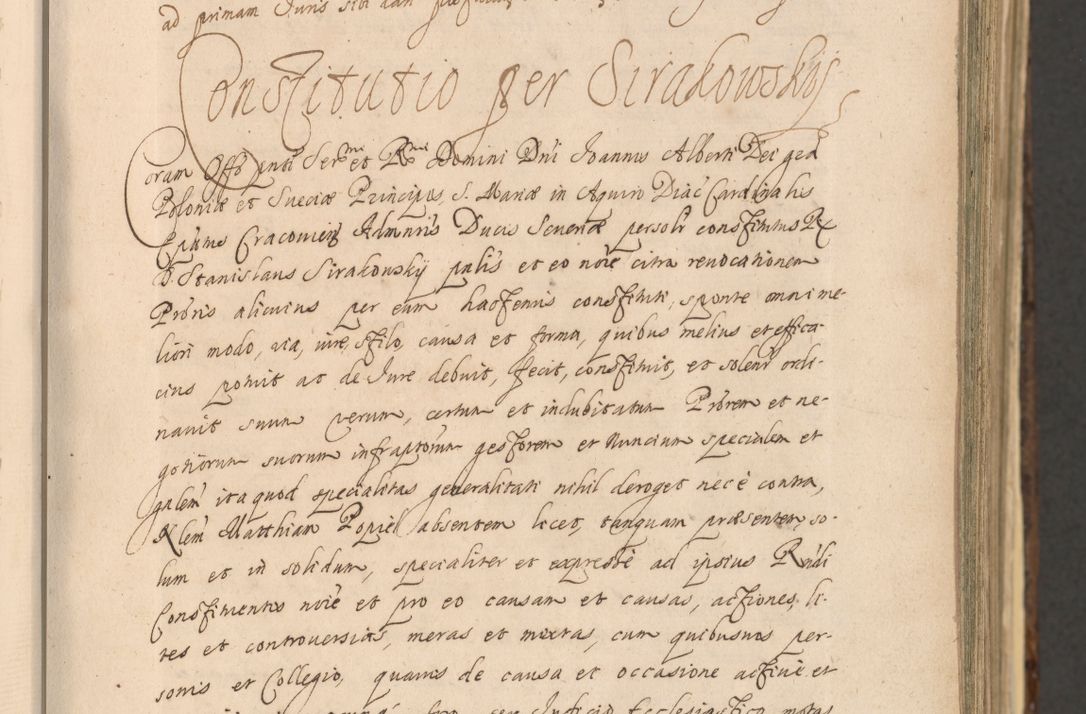 ad primam Iuris sibi
Constitutio per Sirakowskÿ
Coram Offō pnti Sermi et Rmi Domini Dni Ioannis Alberti Dei gra
Poloniæ et Sueciæ Principis, S. Mariæ in Aquiro Diac Cardinalis
Eptus Cracouien Admnris Ducis Seueriæ personlr constitutus R
D. Stanislaus Sirakowskÿ pnlis et eo noie citra reuocationem
Prōris alicuius per eum hactenus constituti, sponte omni me-
liori modo, uia, iure, stilo, causa et forma, quibus melius et effica-
cius potuit ac de Iure debuit, fecit, constituit, et solenr ordi-
nauit suum verum, certum et indubitatum Prōrem et ne-
gotiorum suorum infraptorum gestorem et Nuncium specialem et
gnlem ita quod specialitas generalitati nihil deroget nec è contra,
Nlem Matthiam Popiel absentem licet, tanquam præsentem, so-
lum et in solidum, specialiter et expresse ad ipsius Rndi
Constituentis noie et pro eo causam et causas, actiones, li-
tes et controuersias, meras et mixtas, cum quibusuis per-
sonis et Collegio, quauis de causa et occasione actiue et
seu Iudicio Ecclesiastico motas